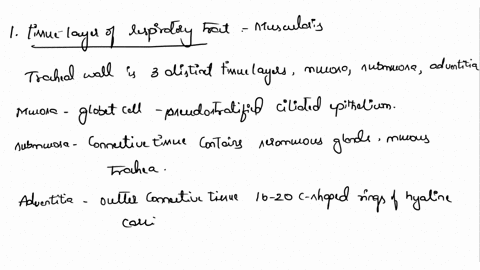 1. Tissue layer of respiratory tract - Muscularis
Trachial wall is 3 distinct tissue layers, mucosa, submucosa, adventitia
Mucosa - globet cell - pseudostratified ciliated epithelium.
submucosa - Connective tissue contains seromucous glands, mucous
trachea.
Adventitia - outter connective tissue 16-20 c-shaped rings of hyaline
carri